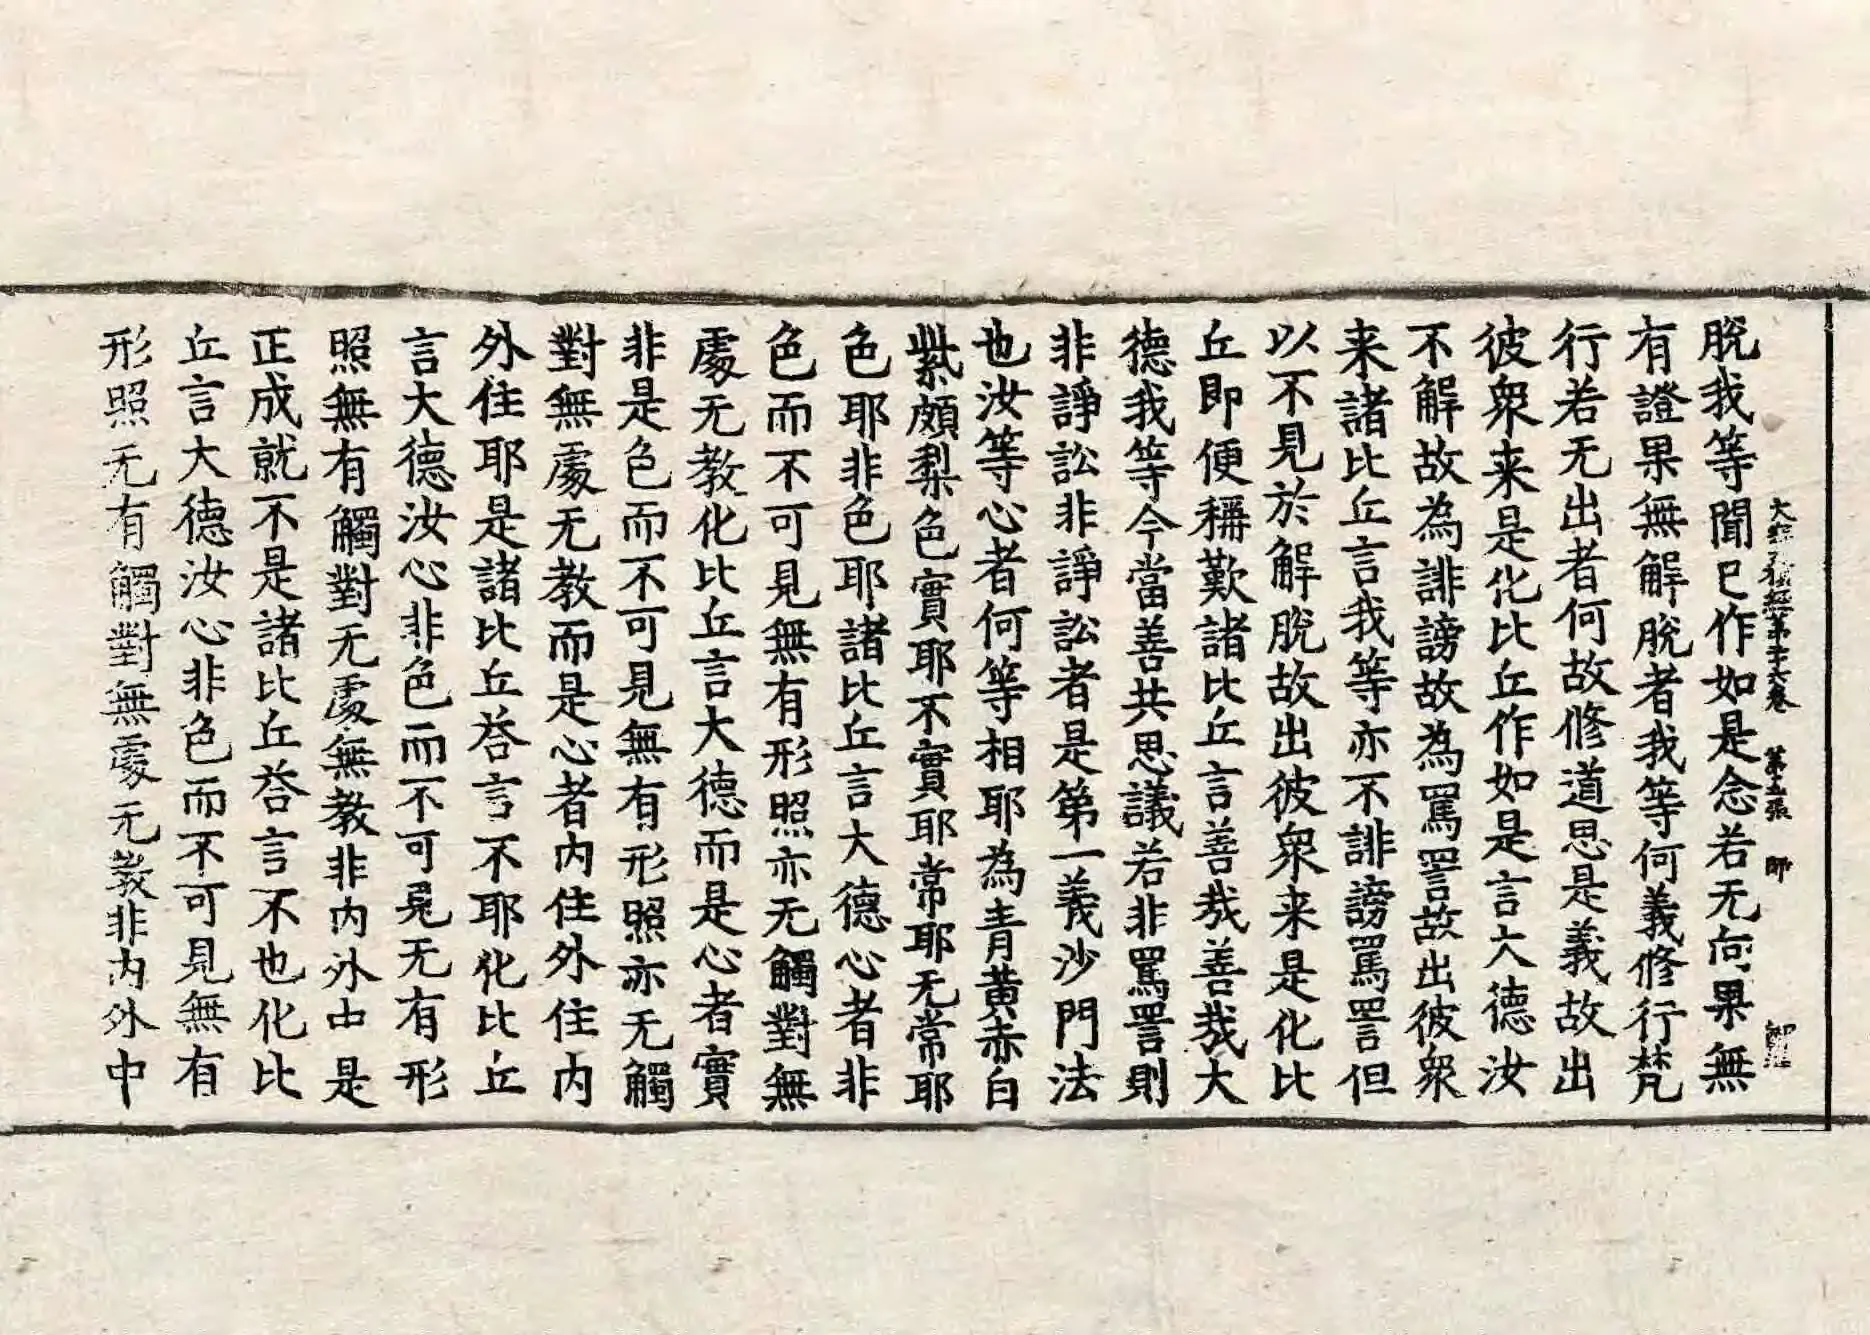 脫我等聞已作如是念若无向果無
有證果無解脫者我等何義修行梵
行若无出者何故修道思是義故出
彼衆来是化比丘作如是言大德汝
不解故為誹謗故為罵詈故出彼衆
来諸比丘言我等亦不誹謗罵詈但
以不見於解脫故出彼衆来是化比
丘即便稱歎諸比丘言善哉善哉大
德我等今當善共思議若非罵詈則
非諍訟非諍訟者是第一義沙門法
也汝等心者何等相耶為青黃赤白
紫頗梨色實耶不實耶常耶无常耶
色耶非色耶諸比丘言大德心者非
色而不可見無有形照亦无觸對無
處无教化比丘言大德而是心者實
非是色而不可見無有形照亦无觸
對無處无教而是心者內住外住內
外住耶是諸比丘荅言不耶化比丘
言大德汝心非色而不可見无有形
照無有觸對无處無教非內外中是
正成就不是諸比丘荅言不也化比
丘言大德汝心非色而不可見無有
形照无有觸對無處无教非內外中